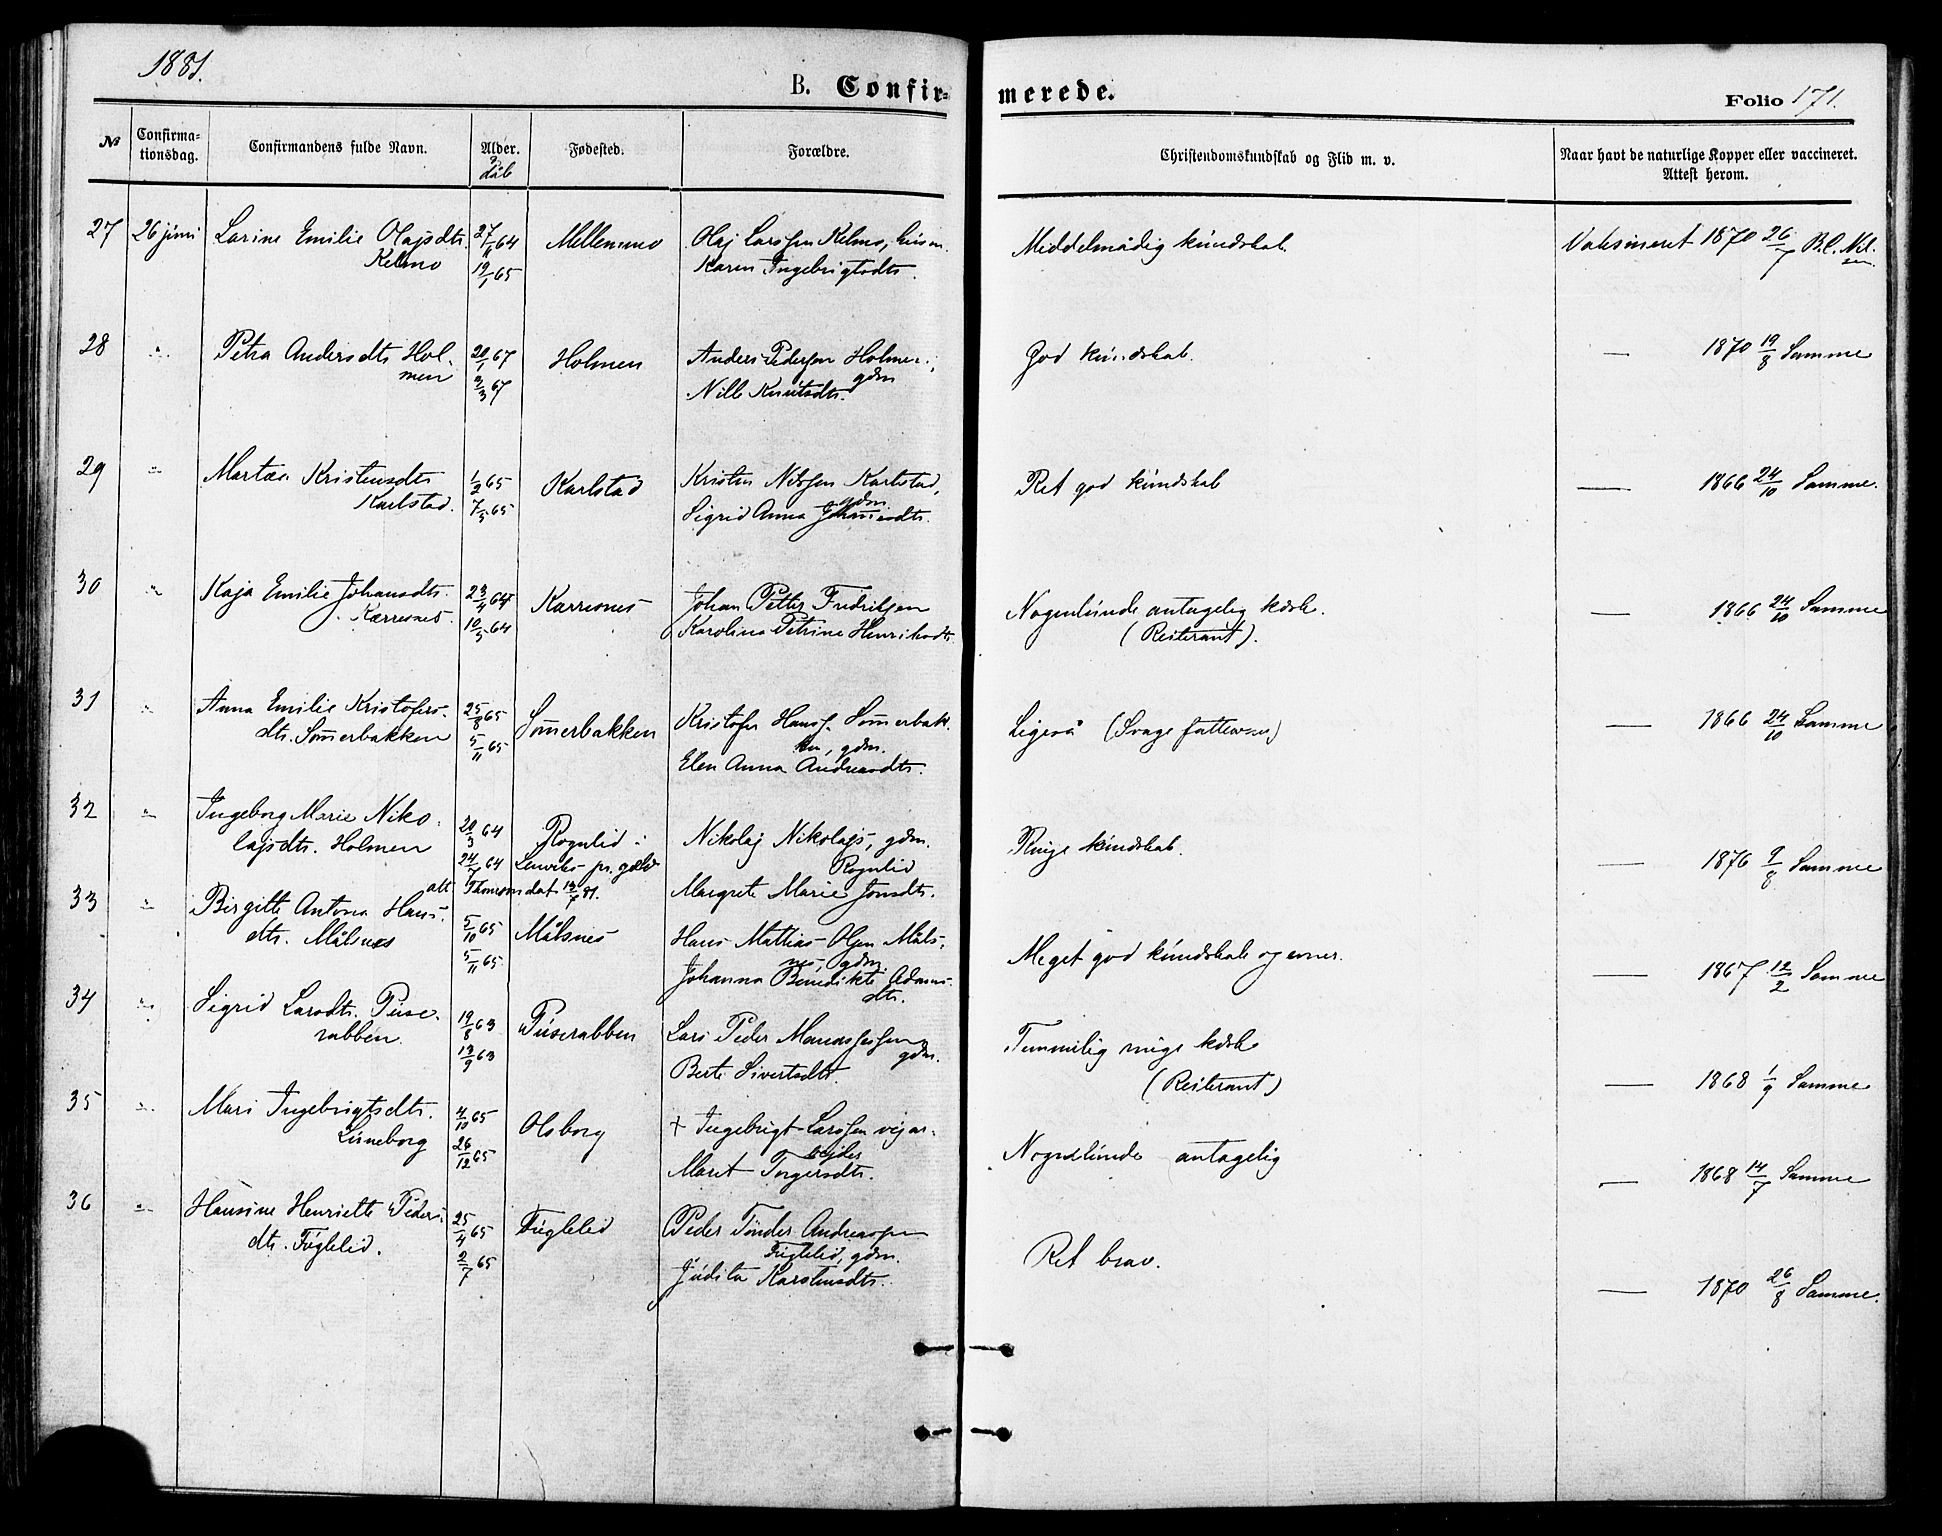 1881.
B. Confirmerede.
Folio 171.
№ Confirmationsdag. Confirmandens fulde Navn. Alder. & dåb Fødested. Forældre. Christendomskundskab og Flid m. v. Naar havt de naturlige Kopper eller vaccineret. Attest herom.
27 26 juni Larine Emilie Olajsdtr. 27/11 64 Mellemmo Olaj Larssen Kelmo, husm. Middelmådig kundskab Vaksineret 1870 26/7 B.l. Nil-
Kelmo 19/1 65 Karen Ingebrigtsdtr. sen.
28 " Petra Andersdtr Hol- 20/1 67 Holmen Anders Pedersen Holmen, God kundskab. — 1870 19/8 Samme
men 3/3 67 gdm
Nille Knutsdtr.
29 " Marta Kristensdtr 1/2 65 Karlstad Kristen Nilssen Karlstad, Ret god kundskab — 1866 24/10 Samme.
Karlstad. 7/5 65 gdm
Sigrid Anna Johansdtr.
30 " Kaja Emilie Johansdtr. 23/4 64 Karresnes Johan Petter Fredriksen Nogenlunde antagelig kdsk. — 1866 24/10 Samme
Karresnes. 10/5 64 Karolina Petrine Henriksdtr. (Reiterant).
31 " Anna Emilie Kristofers- 25/8 65 Sommerbakken Kristofer Hanss. Sommerbak- Ligeså (Svage fatteevner) — 1866 24/10 Samme
dtr. Sommerbakken 5/11 65 ken, gdm.
Elen Anna Andreasdtr.
32 " Ingeborg Marie Niko- 20/3 64 Rognlid i Nikolaj Nikolajs, gdm. Ringe kundskab. — 1876 9/8 Samme
lajsdtr. Holmen 24/7 64 Lenviks pr.gæld Rognlid
att Thomsen dat 13/7 81. Margrete Marie Jonsdtr.
33 " Birgitte Antona Hans- 5/10 65 Målsnes Hans Mattias Olsen Måls- Meget god kundskab og evner. — 1867 12/2 Samme
dtr. Målsnes 5/11 65 nes, gdm.
Johanna Benedikte Adams-
dtr.
34 " Sigrid Larsdtr. Puse- 19/8 63 Puserabben Lars Peder Manassesen Temmelig ringe kdsk — 1868 1/9 Samme
rabben. 13/9 63 gdm. (Reiterant)
Berte Sivertsdtr.
35 " Mari Ingebrigtsdtr. 4/10 65 Olsborg + Ingebrigt Larssen vejar- Nogenlunde antagelig — 1868 14/7 Samme
Luneborg 26/12 65 bejder
Maret Torgersdtr.
36 " Hansine Henriette Peders- 25/4 65 Fuglelid Peder Tønder Andreassen Ret brav. — 1870 26/8 Samme.
dtr. Fuglelid. 2/7 65 Fuglelid, gdm.
Judita Karstensdtr.